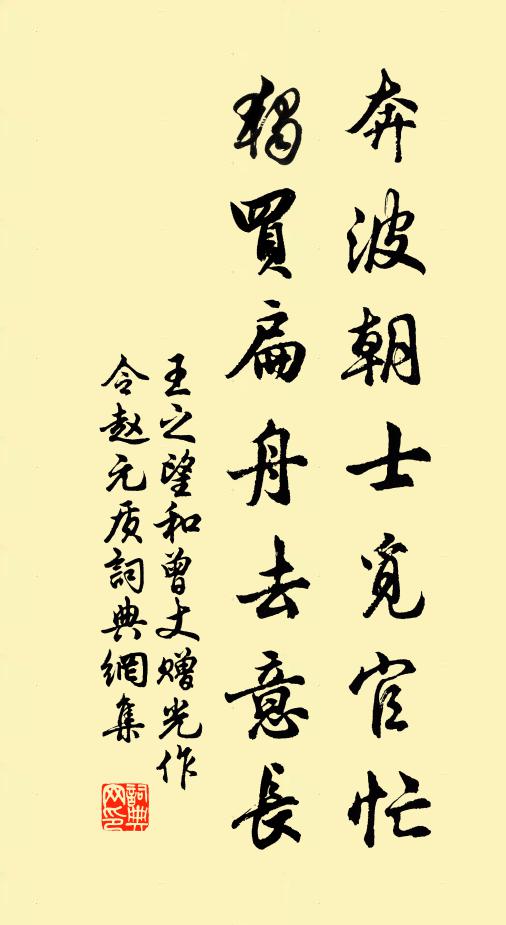 奔波朝士覓官忙
獨買扁舟去意長
王之望和曾丈贈光作
令赵元质詞典網集
詞典網印